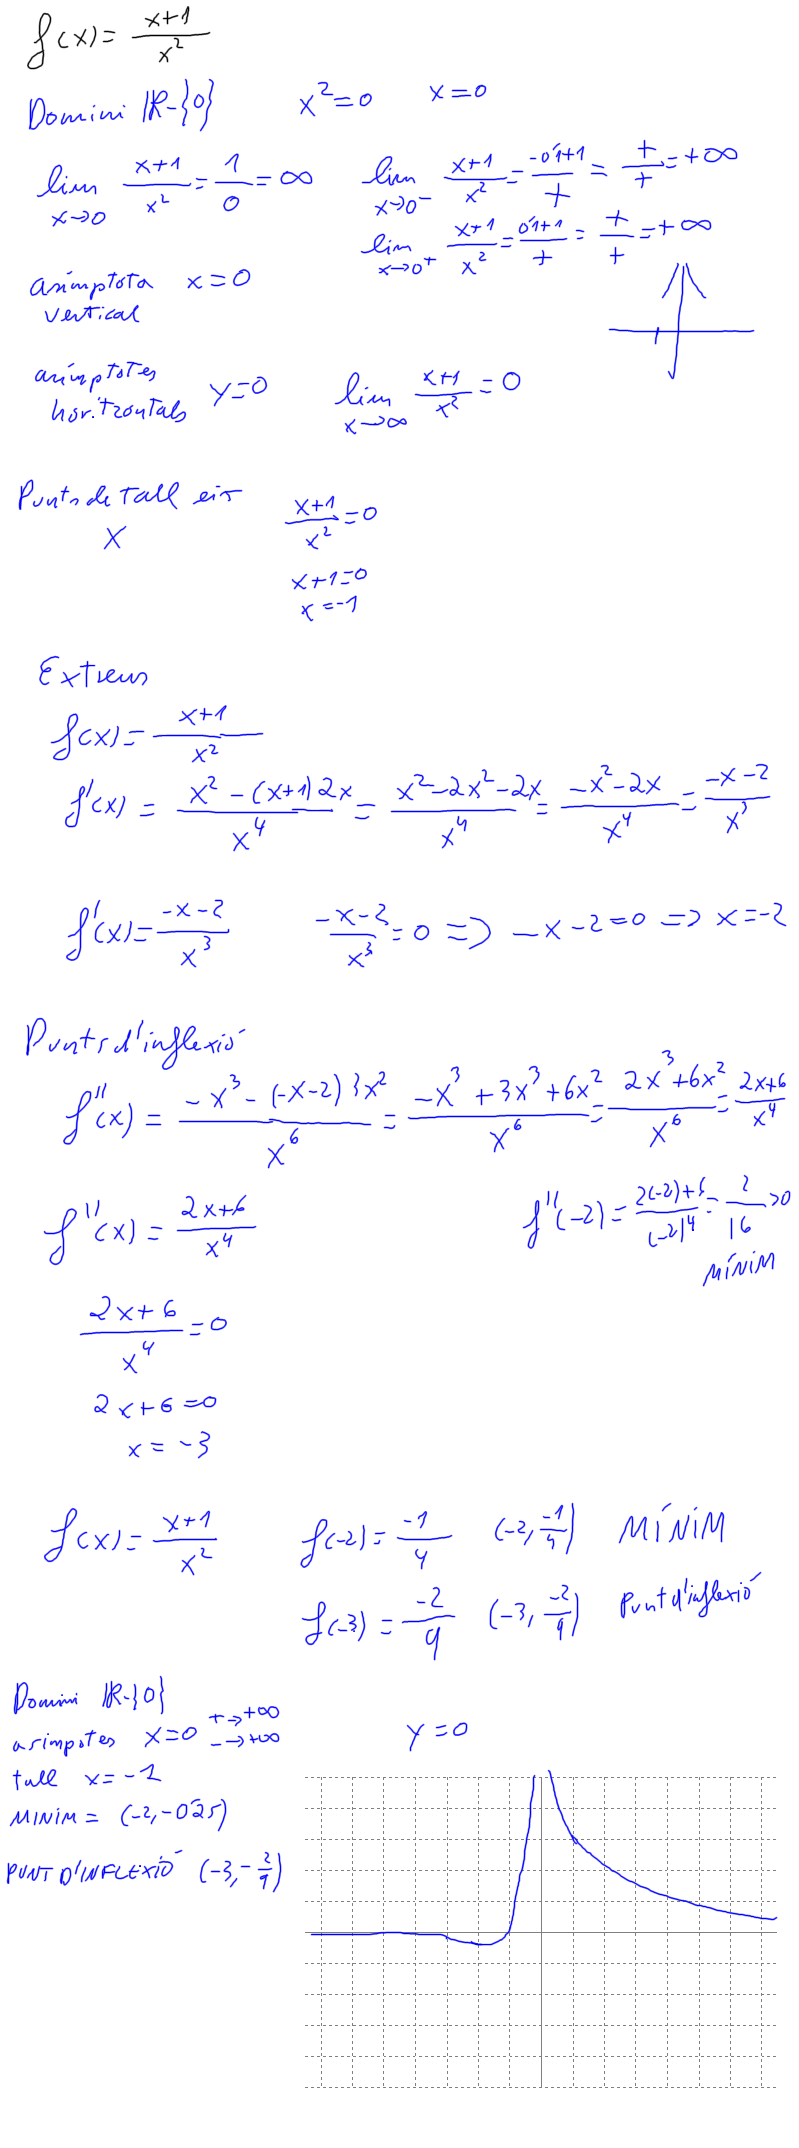 f(x)= x+1/x²
Domini ℝ-{0} x²=0 x=0
lim x→0 x+1/x² = 1/0 = ∞ lim x→0⁻ x+1/x² = -0'1+1/+ = +/+ = +∞
lim x→0⁺ x+1/x² = 0'1+1/+ = +/+ = +∞
asímptota x=0
vertical
asímptotes
horitzontals y=0 lim x→∞ x+1/x² = 0
Punts de tall eix
X
x+1/x² = 0
x+1=0
x=-1
Extrems
f(x)= x+1/x²
f'(x) = x²-(x+1)2x/x⁴ = x²-2x²-2x/x⁴ = -x²-2x/x⁴ = -x-2/x³
f'(x)= -x-2/x³ -x-2/x³ = 0 => -x-2=0 => x=-2
Punts d'inflexió
f''(x) = -x³-(-x-2)3x²/x⁶ = -x³+3x³+6x²/x⁶ = 2x³+6x²/x⁶ = 2x+6/x⁴
f''(x) = 2x+6/x⁴ f''(-2) = 2(-2)+6/(-2)⁴ = 2/16 >0
MÍNIM
2x+6/x⁴ = 0
2x+6=0
x = -3
f(x)= x+1/x² f(-2)= -1/4 (-2, -1/4) MÍNIM
f(-3) = -2/9 (-3, -2/9) Punt d'inflexió
Domini ℝ-{0}
asimptotes x=0 +→+∞ -→+∞ y=0
tall x=-1
MINIM = (-2,-0'25)
PUNT D'INFLEXIÓ (-3,-2/9)